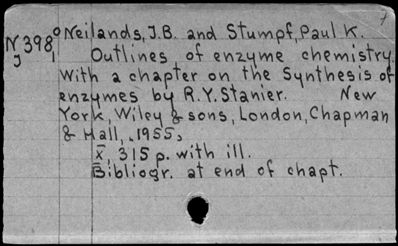 7
N 398, Neilands, J.B. and Stumpf, Paul K.
J Outlines of enzyme chemistry.
With a chapter on the Synthesis of
enzymes by R.Y. Stanier. New
York, Wiley & sons, London, Chapman
& Hall, 1955,
X, 315 p. with ill.
Bibliogr. at end of chapt.